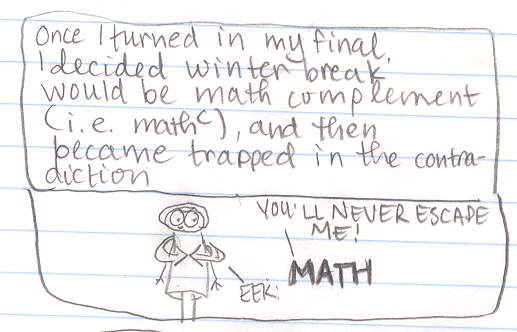 Once I turned in my final,
I decided winter break
would be math complement
(i.e. mathᶜ), and then
became trapped in the contra-
diction
YOU'LL NEVER ESCAPE
ME!
MATH
EEK!